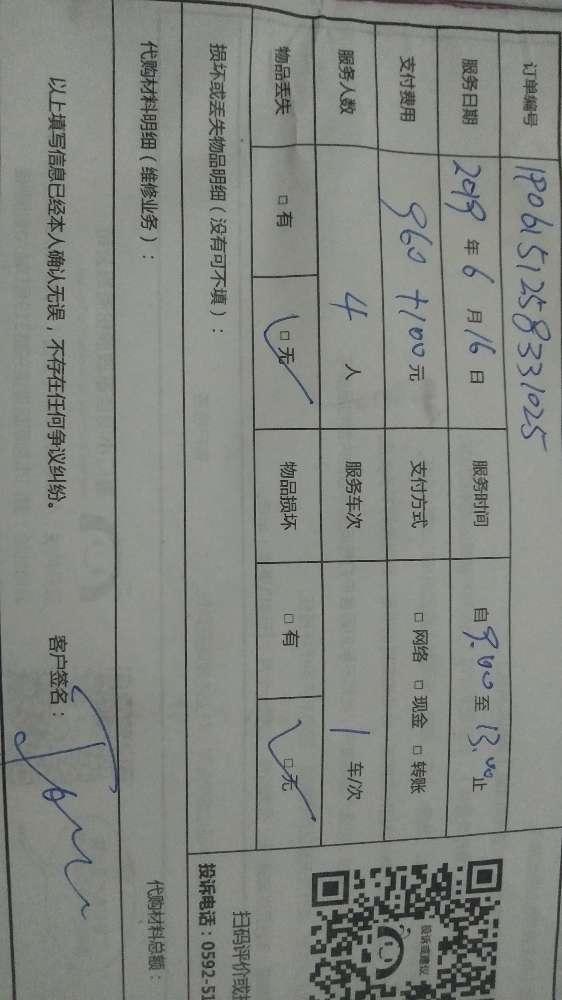 订单编号 1906151258331025
服务日期 2019 年 6 月 16 日 服务时间 自 9:00 至 13:00 止
支付费用 960+100 元 支付方式 □ 网络 □ 现金 □ 转账
服务人数 4 人 服务车次 1 车/次
物品丢失 □ 有 □ 无 物品损坏 □ 有 □ 无
损坏或丢失物品明细（没有可不填）：
代购材料明细（维修业务）： 代购材料总额：
以上填写信息已经本人确认无误，不存在任何争议纠纷。 客户签名：
投诉或建议
扫码评价或
投诉电话：0592-51